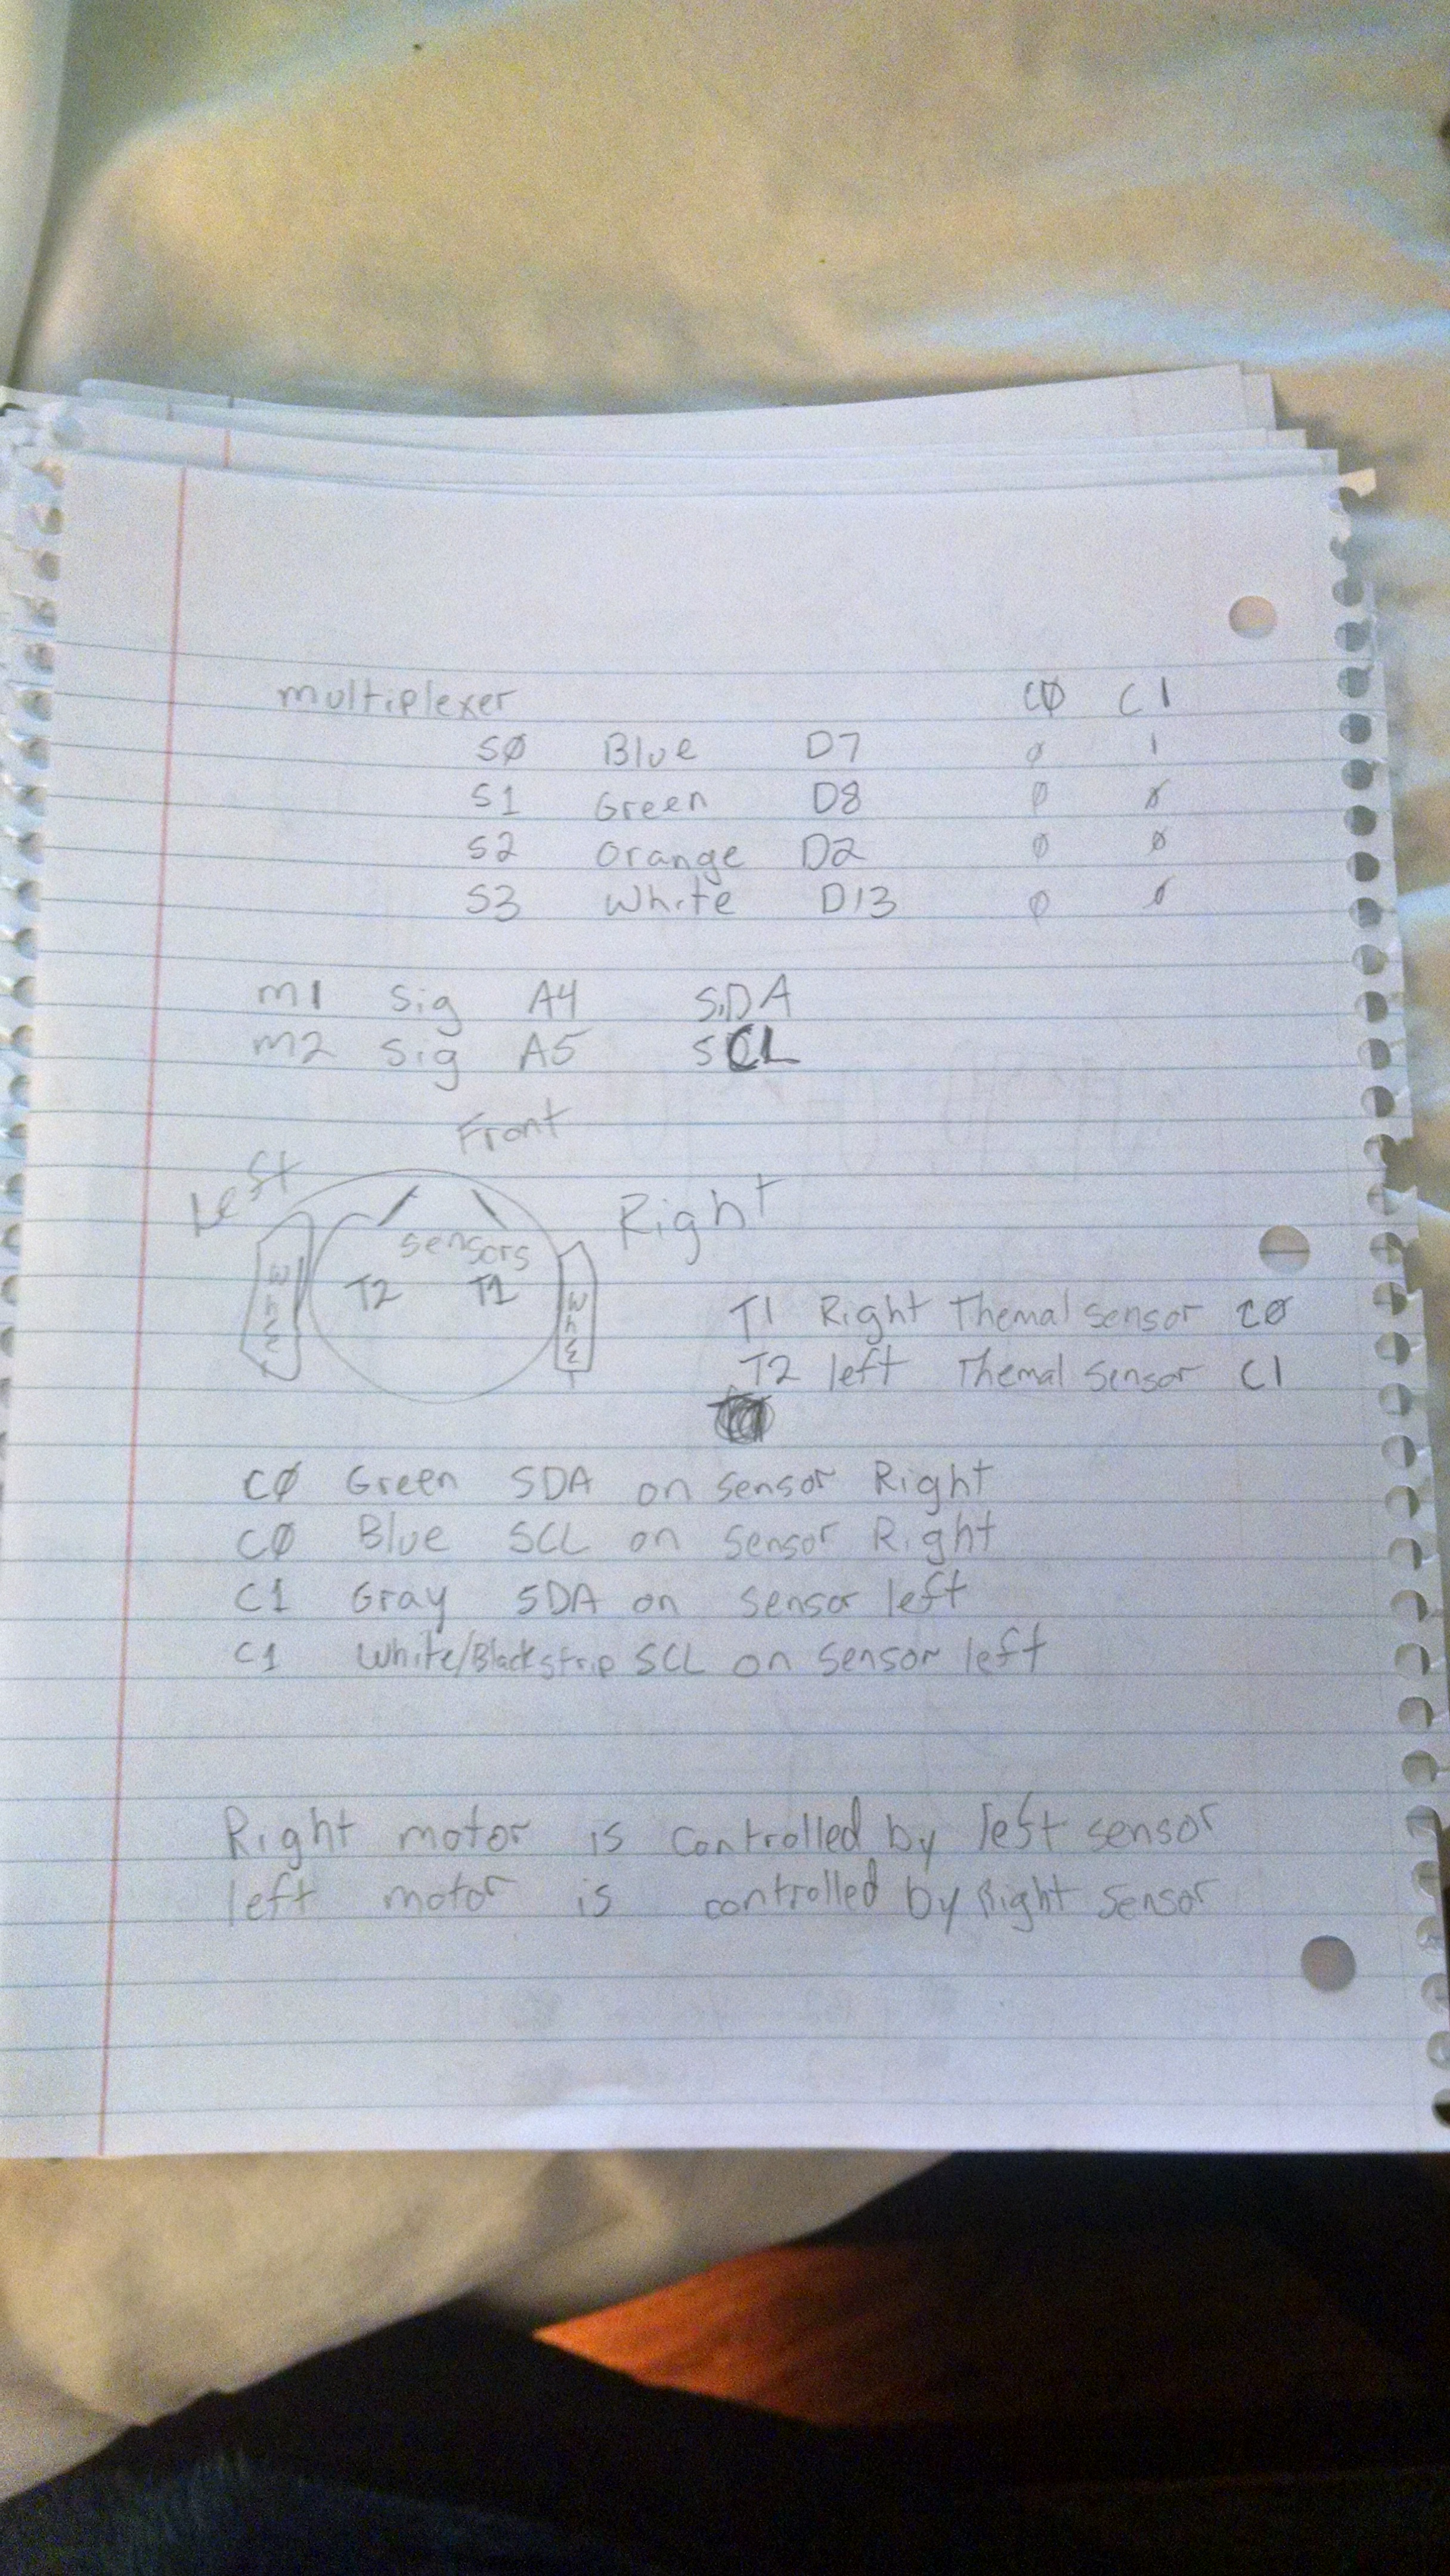 multiplexer CØ C1
SØ Blue D7 Ø 1
S1 Green D8 Ø Ø
S2 Orange D2 Ø Ø
S3 White D13 Ø Ø
m1 Sig A4 SDA
m2 Sig A5 SCL
Front
Left
Right
Sensors
T2 T1
T1 Right Themal Sensor CØ
T2 left Themal Sensor C1
CØ Green SDA on Sensor Right
CØ Blue SCL on Sensor Right
C1 Gray SDA on Sensor left
C1 White/Blackstrip SCL on Sensor left
Right motor is Controlled by left sensor
left motor is controlled by Right Sensor